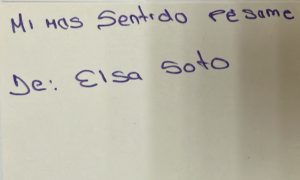 Mi mas Sentido Pésame
De: Elsa Soto